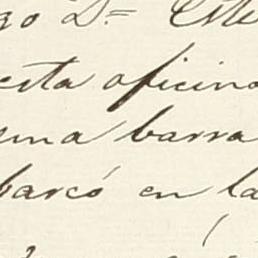 go Dn Este
esta oficina
una barra
barcó en la